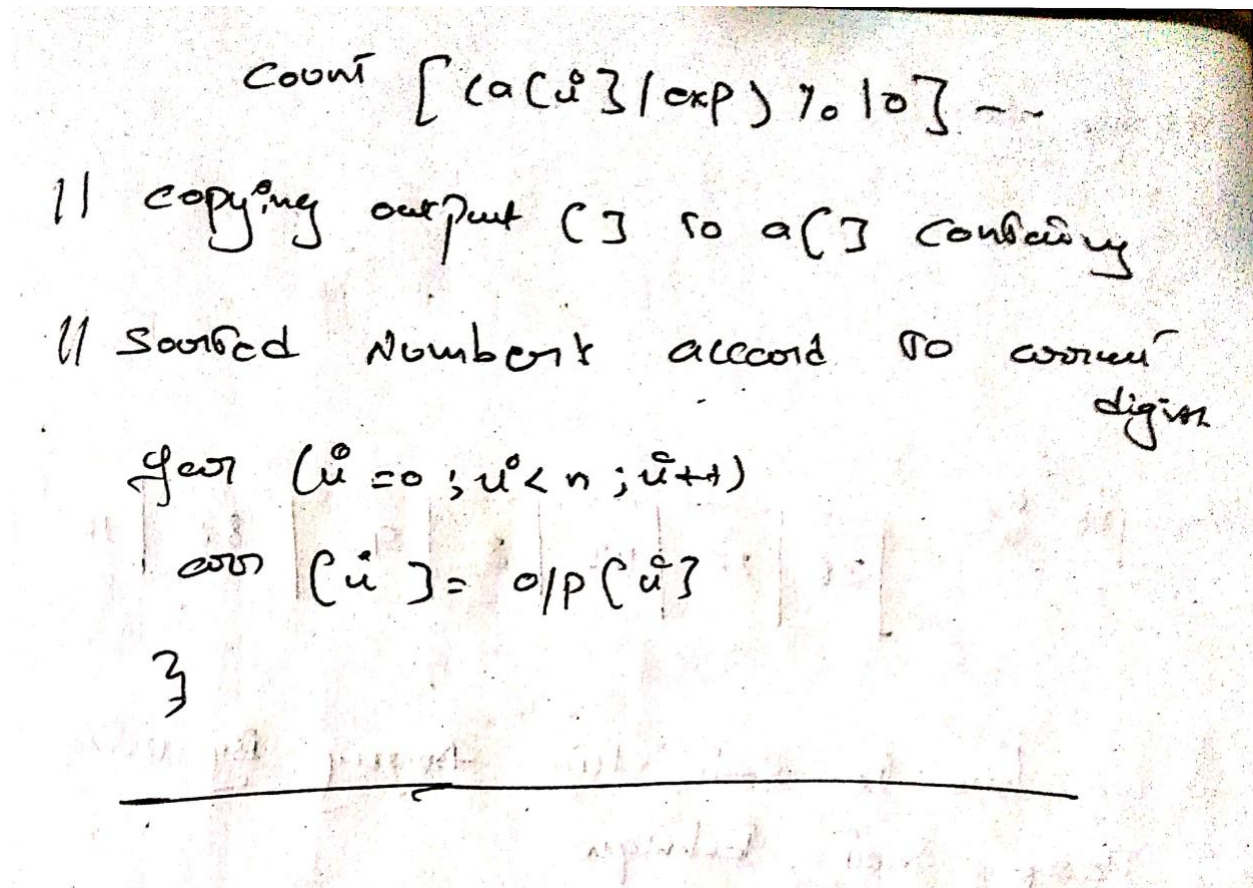 count [(a[i]/exp) % 10] --
// copying output [] to a[] containing
// sorted Numbers acccord to current
digits
for (i=0; i<n; i++)
arr [i] = o/p[i]
}